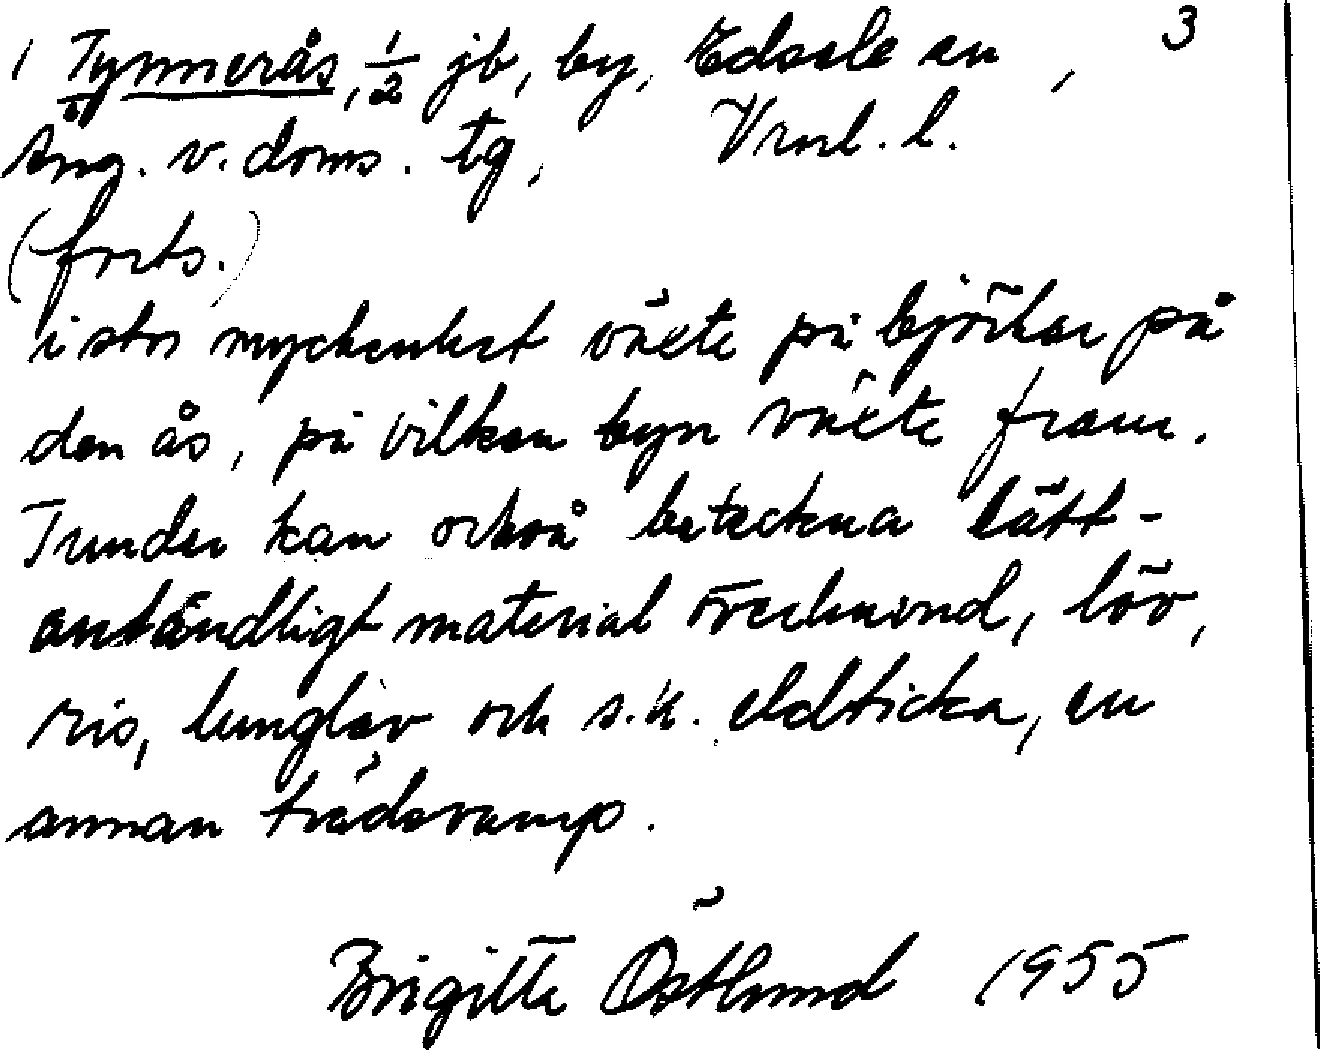 1 Tynnerås, 1/2 jb, by, Edsele sn, 3
Ång. v. doms. tg, Vrnl. l.
(forts.)
i stor myckenhet växte på björkar på
den ås, på vilken byn växte fram.
Tunder kan också beteckna lätt-
antändligt material överhuvud, löv,
ris, lunglav och s.k. eldticka, en
annan trädsvamp.
Brigitte Östlund 1955